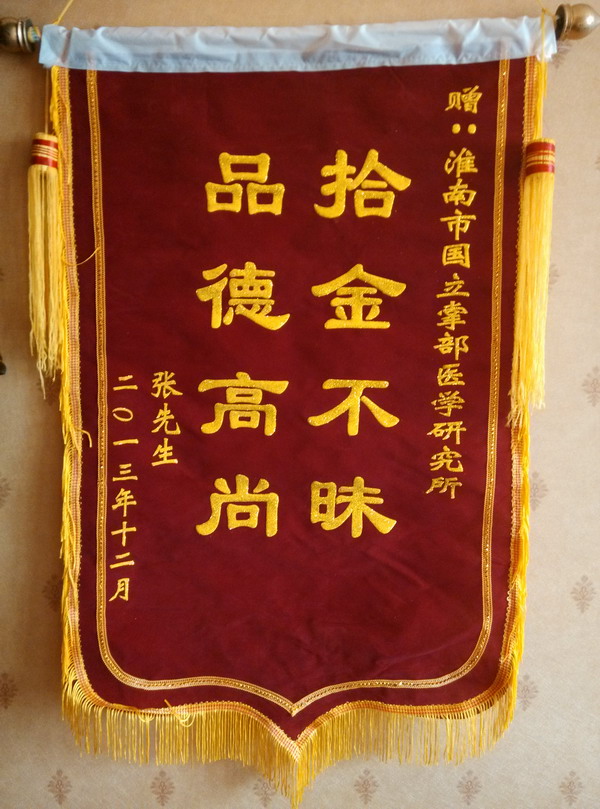 赠：淮南市国立掌部医学研究所
拾金不昧
品德高尚
张先生
二〇一三年十二月